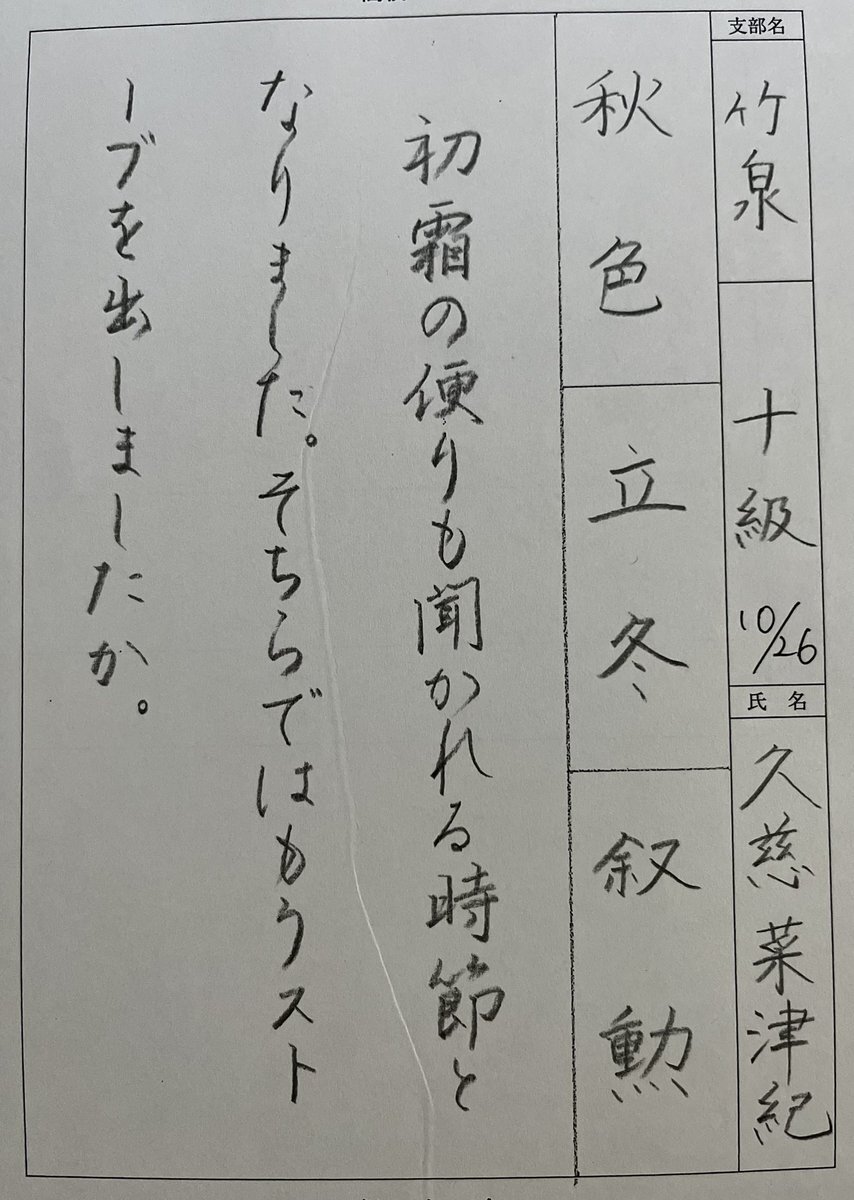 支部名
竹泉
十級 10/26
氏名
久慈菜津紀
秋色
立冬
叙勲
初霜の便りも聞かれる時節と
なりました。そちらではもうスト
ーブを出しましたか。